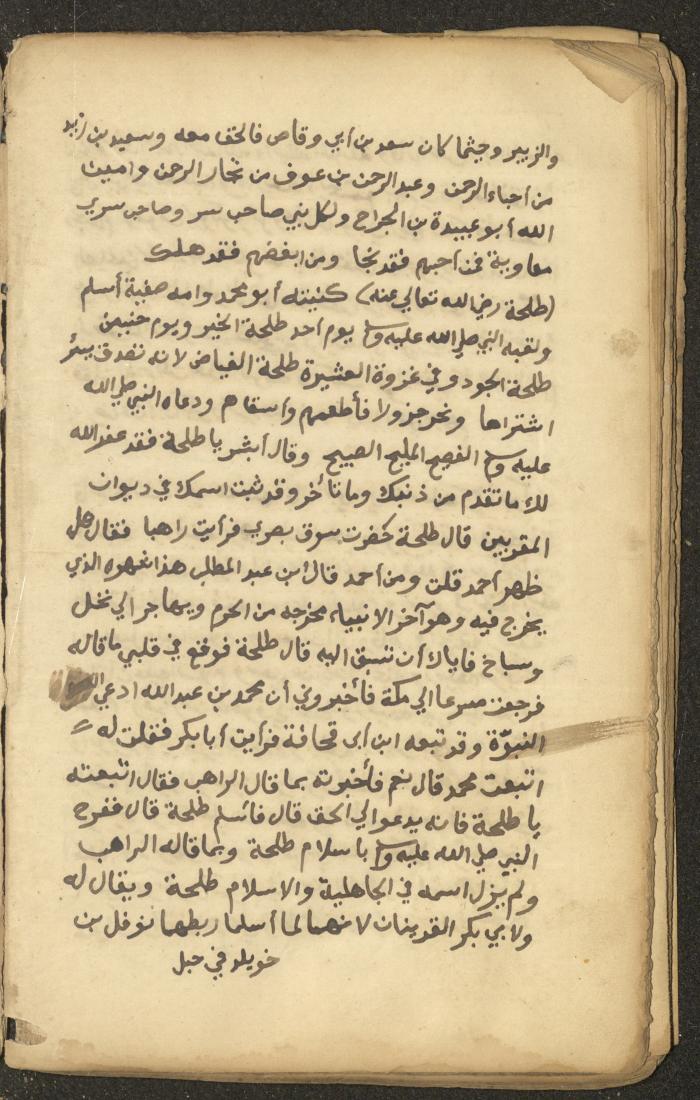 والزبير وحيثما كان سعد بن أبي وقاص فالحق معه وسعيد بن زيد
من أحباء الرحمن وعبد الرحمن بن عوف من تجار الرحمن وامين
الله أبو عبيدة بن الجراح ولكل نبي صاحب سر وصاحب سري
معاوية فمن احبهم فقد نجا ومن ابغضهم فقد هلك
(طلحة رضي الله تعالى عنه) كنيته أبو محمد وامه صفية أسلم
ولقبه النبي صلى الله عليه وسلم يوم أحد طلحة الخير ويوم حنين
طلحة الجود وفي غزوة العشيرة طلحة الفياض لانه تصدق ببئر
اشتراها ونحر جزولا فأطعمهم وأسقاهم ودعاه النبي صلى الله
عليه وسلم الفصيح المليح الصبيح وقال أبشر يا طلحة فقد غفر الله
لك ما تقدم من ذنبك وما تأخر وقد ثبت اسمك في ديوان
المقربين قال طلحة حضرت سوق بصرى فرأيت راهبا فقال هل
ظهر أحمد قلت ومن أحمد قال ابن عبد المطلب هذا شهره الذي
يخرج فيه وهو آخر الانبياء مخرجه من الحرم ويهاجر الي نخل
وسباخ فاياك أن تسبق اليه قال طلحة فوقع في قلبي ما قاله
فرجعت مسرعا الي مكة فأخبروني أن محمد بن عبد الله ادعي
النبوّة وقد تبعه ابن أبى قحافة فرأيت أبا بكر فقلت له
اتبعت محمد قال نعم فأخبرته بما قال الراهب فقال اتبعته
يا طلحة فانه يدعو الي الحق قال فأسلم طلحة قال ففرح
النبي صلي الله عليه وسلم باسلام طلحة وبما قاله الراهب
ولم يزل اسمه في الجاهلية والاسلام طلحة ويقال له
ولابي بكر القرينان لانهما لما أسلما ربطهما نوفل بن
خويلد في حبل